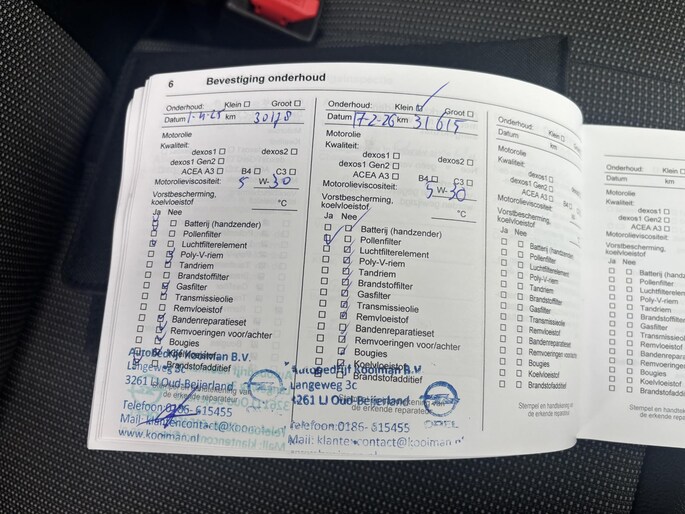 6 Bevestiging onderhoud
Onderhoud: Klein Groot
Datum 1-4-25 km 30178
Motorolie
Kwaliteit:
dexos1 dexos2
dexos1 Gen2
ACEA A3 B4 C3
Motorolieviscositeit: 5 W- 30
Vorstbescherming,
koelvloeistof °C
Ja Nee
Batterij (handzender)
Pollenfilter
Luchtfilterelement
Poly-V-riem
Tandriem
Brandstoffilter
Gasfilter
Transmissieolie
Remvloeistof
Bandenreparatieset
Remvoeringen voor/achter
Bougies
Koelvloeistof
Brandstofadditief
Autobedrijf Kooiman B.V.
Langeweg 3c
3261 LJ Oud-Beijerland
Telefoon:0186- 615455
Mail: klantencontact@kooiman
www.kooiman.nl
Onderhoud: Klein Groot
Datum 17-2-26 km 31615
Motorolie
Kwaliteit:
dexos1 dexos2
dexos1 Gen2
ACEA A3 B4 C3
Motorolieviscositeit: 5 W- 30
Vorstbescherming,
koelvloeistof °C
Ja Nee
Batterij (handzender)
Pollenfilter
Luchtfilterelement
Poly-V-riem
Tandriem
Brandstoffilter
Gasfilter
Transmissieolie
Remvloeistof
Bandenreparatieset
Remvoeringen voor/achter
Bougies
Koelvloeistof
Brandstofadditief
Autobedrijf Kooiman B.V.
Langeweg 3c
3261 LJ Oud-Beijerland
de erkende reparateur
OPEL
Telefoon:0186- 615455
Mail: klantencontact@kooiman.nl
Onderhoud: Klein
Datum km
Motorolie
Kwaliteit:
dexos1
dexos1 Gen2
ACEA A3
Motorolieviscositeit:
Vorstbescherming,
koelvloeistof
Ja Nee
Batterij (handzender)
Pollenfilter
Luchtfilterelement
Poly-V-riem
Tandriem
Brandstoffilter
Gasfilter
Transmissieolie
Remvloeistof
Bandenreparatieset
Remvoeringen voor/achter
Bougies
Koelvloeistof
Brandstofadditief
Stempel en handtekening van
de erkende reparateur
Onderhoud:
Datum
Motorolie
Kwaliteit:
dexos1
dexos1 Gen2
ACEA A3
Motorolieviscositeit:
Vorstbescherming,
koelvloeistof
Ja Nee
Batterij (handzender)
Pollenfilter
Luchtfilterelement
Poly-V-riem
Tandriem
Brandstoffilter
Gasfilter
Transmissieolie
Remvloeistof
Bandenreparatieset
Remvoeringen
Bougies
Koelvloeistof
Brandstofadditief
Stempel en
de erkende